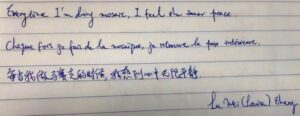 Everytime I'm doing mosaic, I feel the inner peace.
Chaque fois je fais de la mosaïque, je retrouve la paix intérieure.
每当我做马赛克的时候，我感到心中无限平静。
Lu Wei (Louise) Zhang